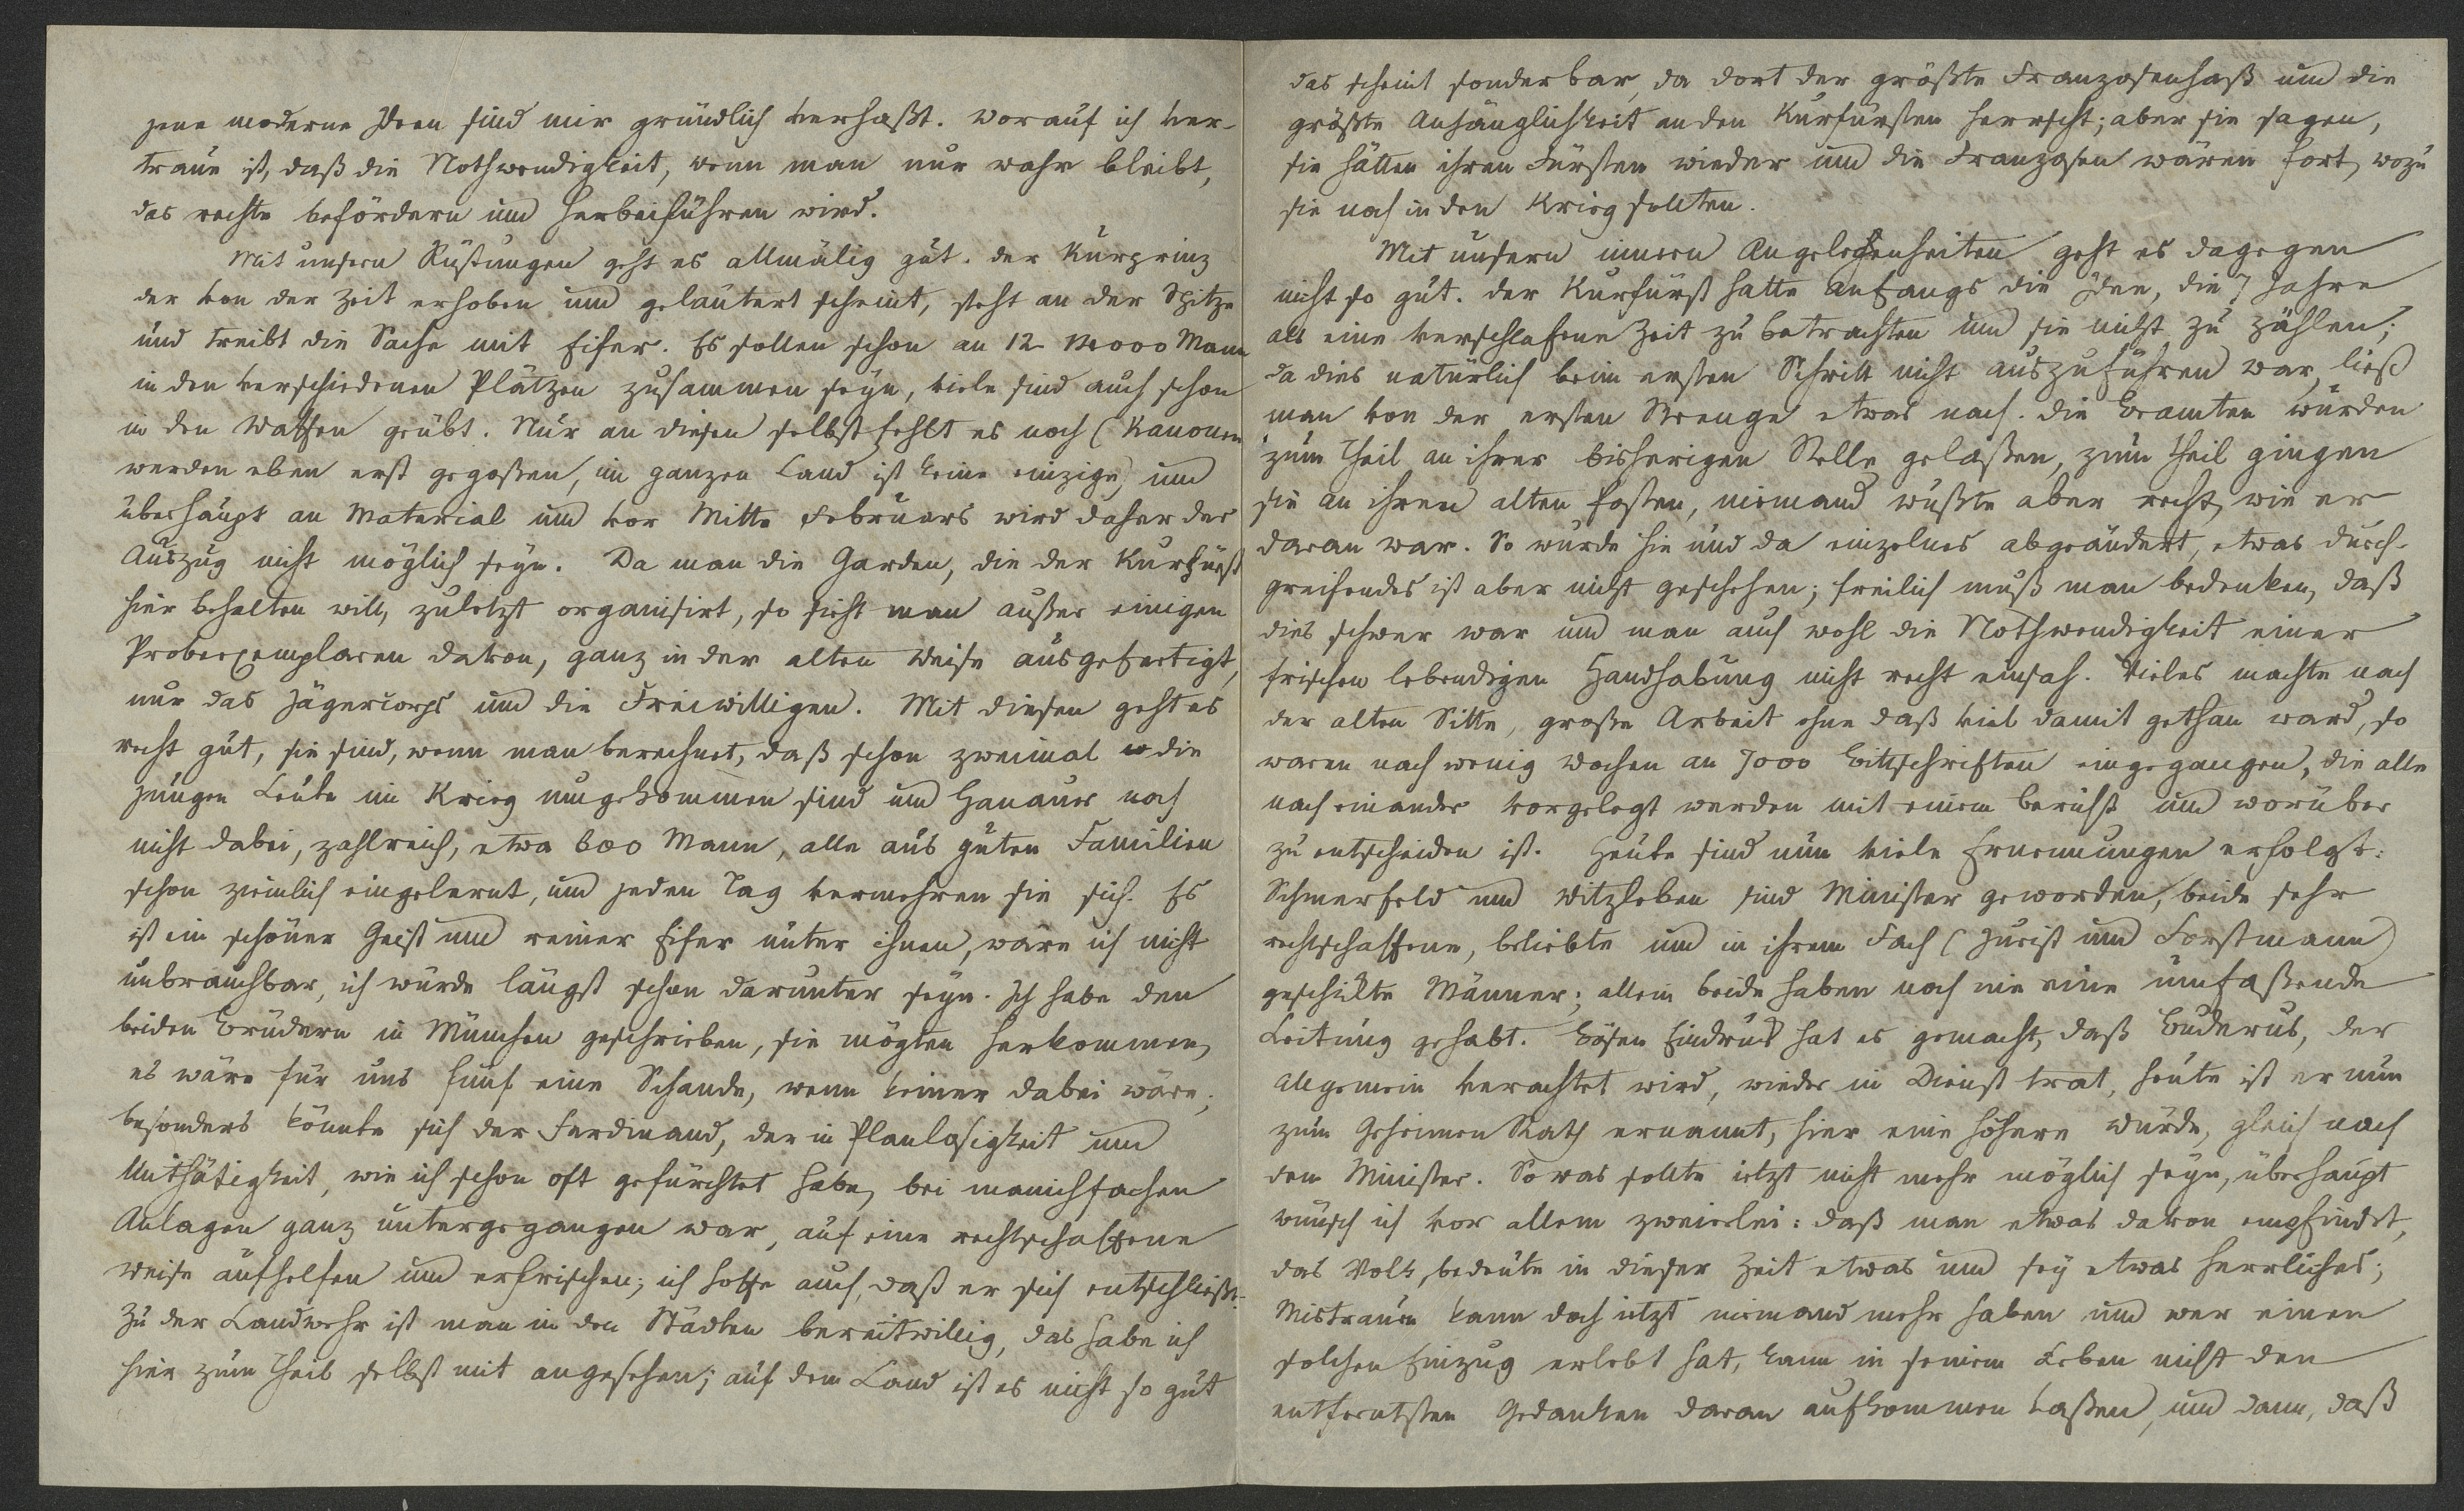 jene moderne Ideen sind mir gründlich verhaßt. worauf ich ver-
traue ist, daß die Nothwendigkeit, wenn man nur wahr bleibt,
das rechte befördern und herbeiführen wird.
Mit unsern Rüstungen geht es allmälig gut. der Kurprinz
der von der Zeit erhoben und geläutert scheint, steht an der Spitze
und treibt die Sache mit Eifer. Es sollen schon an 12- 14000 Mann
in den verschiedenen Plätzen zusammen seyn, viele sind auch schon
in den Waffen geübt. Nur an diesen selbst fehlt es noch (Kanonen
werden eben erst gegoßen, im ganzen Land ist keine einzige) und
überhaupt an Material und vor Mitte Februars wird daher der
Auszug nicht möglich seyn. Da man die Garden, die der Kurfürst
hier behalten will, zuletzt organisirt, so sieht man außer einigen
Probeexemplaren davon, ganz in der alten Weise ausgefertigt,
nur das Jägercorps und die Freiwilligen. Mit diesen geht es
recht gut, sie sind, wenn man berechnet, daß schon zweimal die
jungen Leute im Krieg umgekommen sind und Hanauer noch
nicht dabei, zahlreich, etwa 600 Mann, alle aus guten Familien
schon ziemlich eingelernt, und jeden Tag vermehren sie sich. Es
ist ein schöner Geist und reiner Eifer unter ihnen, wäre ich nicht
unbrauchbar, ich würde längst schon darunter seyn. Ich habe den
beiden Brüdern in München geschrieben, sie mögten herkommen,
es wäre für uns fünf eine Schande, wenn keiner dabei wäre;
besonders könnte sich der Ferdinand, der in Planlosigkeit und
Unthätigkeit, wie ich schon oft gefürchtet habe, bei manichfachen
Anlagen ganz untergegangen war, auf eine rechtschaffene
Weise aufhelfen und erfrischen; ich hoffe auch, daß er sich entschließt.
Zu der Landwehr ist man in den Städten bereitwillig, das habe ich
hier zum Theil selbst mit angesehen; auf dem Land ist es nicht so gut
das scheint sonderbar, da dort der größte Franzosenhaß und die
größte Anhänglichkeit an den Kurfürsten herrscht; aber sie sagen,
sie hätten ihren Fürsten wieder und die Franzosen wären fort, wozu
sie noch in den Krieg sollten.
Mit unsern innern Angelegenheiten geht es dagegen
nicht so gut. der Kurfürst hatte Anfangs die Idee, die 7 Jahre
als eine verschlafene Zeit zu betrachten und sie nicht zu zählen;
da dies natürlich beim ersten Schritt nicht auszuführen war, ließ
man von der ersten Strenge etwas nach. die Beamten wurden
zum Theil an ihrer bisherigen Stelle gelaßen, zum Theil gingen
sie an ihren alten Posten, niemand wußte aber recht, wie er
daran war. So wurde hie und da einzelnes abgeändert, etwas durch-
greifendes ist aber nicht geschehen; freilich muß man bedenken, daß
dies schwer war und man auch wohl die Nothwendigkeit einer
frischen lebendigen Handhabung nicht recht einsah. Vieles machte nach
der alten Sitte, große Arbeit ohne daß viel damit gethan ward, so
waren nach wenig Wochen an 7000 Bittschriften eingegangen, die alle
nach einander vorgelegt werden mit einem Bericht und worüber
zu entscheiden ist. Heute sind nun viele Ernennungen erfolgt:
Schmerfeld und Witzleben sind Minister geworden, beide sehr
rechtschaffene, beliebte und in ihrem Fach (Jurist und Forstmann)
geschickte Männer; allein beide haben noch nie eine umfaßende
Leitung gehabt. Bösen Eindruck hat es gemacht, daß Buderus, der
allgemein verachtet wird, wieder in Dienst trat, heute ist er nun
zum Geheimen Rath ernannt, hier eine höhere Würde, gleich nach
dem Minister. So was sollte ietzt nicht mehr möglich seyn, überhaupt
wünsch ich vor allem zweierlei: daß man etwas davon empfindet,
das Volk, bedeute in dieser Zeit etwas und sey etwas herrliches;
Mistrauen kann doch ietzt niemand mehr haben und wer einen
solchen Einzug erlebt hat, kann in seinem Leben nicht den
entferntsten Gedanken daran aufkommen laßen, und dann, daß